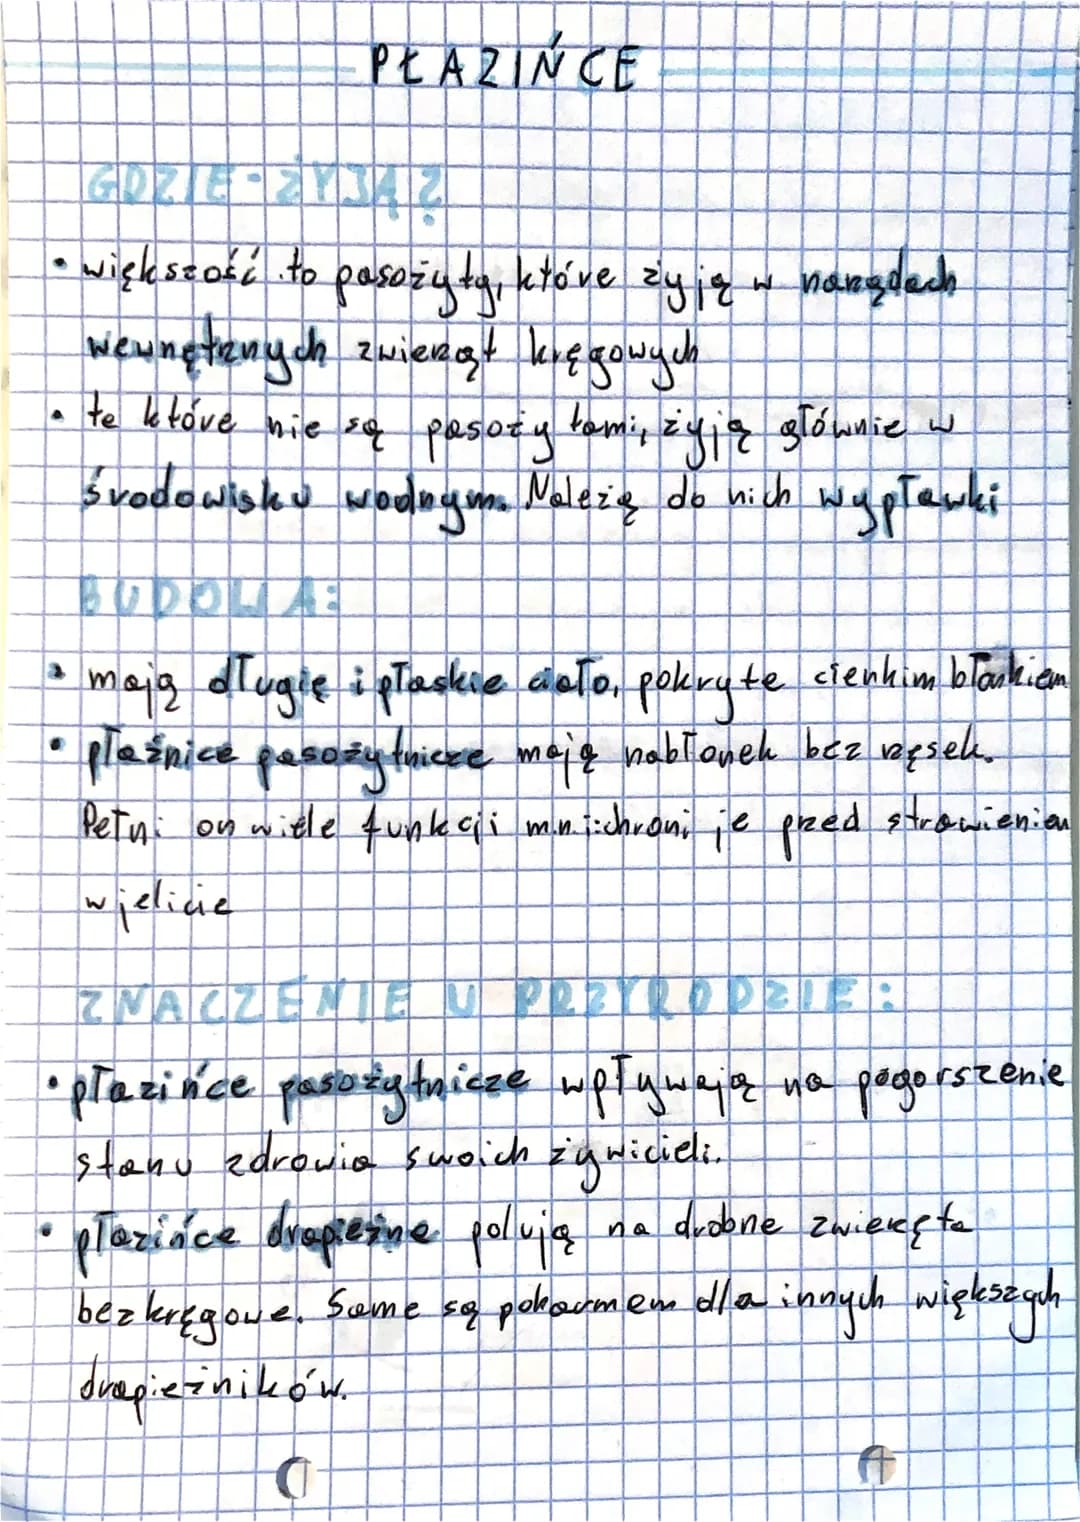 PŁAZIŃCE
GDZIE-ŻYJĄ?
• większość to pasożyty, które żyją w narządach
wewnętrznych zwierząt kręgowych
• te które nie są pasożytami, żyją głównie w
środowisku wodnym. Należą do nich wypławki
BUDOWA:
• mają długię i płaskie ciało, pokryte cienkim błonkiem
• płaźnice pasożytnicze mają nabłonek bez rzęsek.
Pełni on wiele funkcji m.n.i:chroni je przed strawieniem
w jelicie
ZNACZENIE W PRZYRODZIE:
• płazińce pasożytnicze wpływają na pogorszenie
stanu zdrowia swoich żywicieli.
• płazińce drapieżne polują na drobne zwierzęta
bezkręgowe. Same są pokarmem dla innych większych
drapieżników.